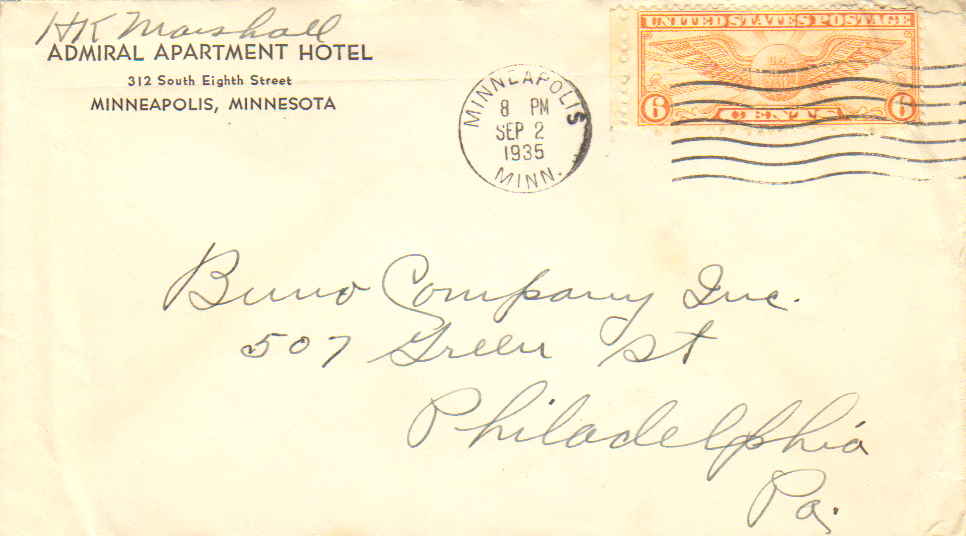 HK Marshall
ADMIRAL APARTMENT HOTEL
312 South Eighth Street
MINNEAPOLIS, MINNESOTA
MINNEAPOLIS
8 PM
SEP 2
1935
MINN.
UNITED STATES POSTAGE
U.S.
6 CENTS 6
Buno Company Inc.
507 Green St
Philadelphia
Pa.